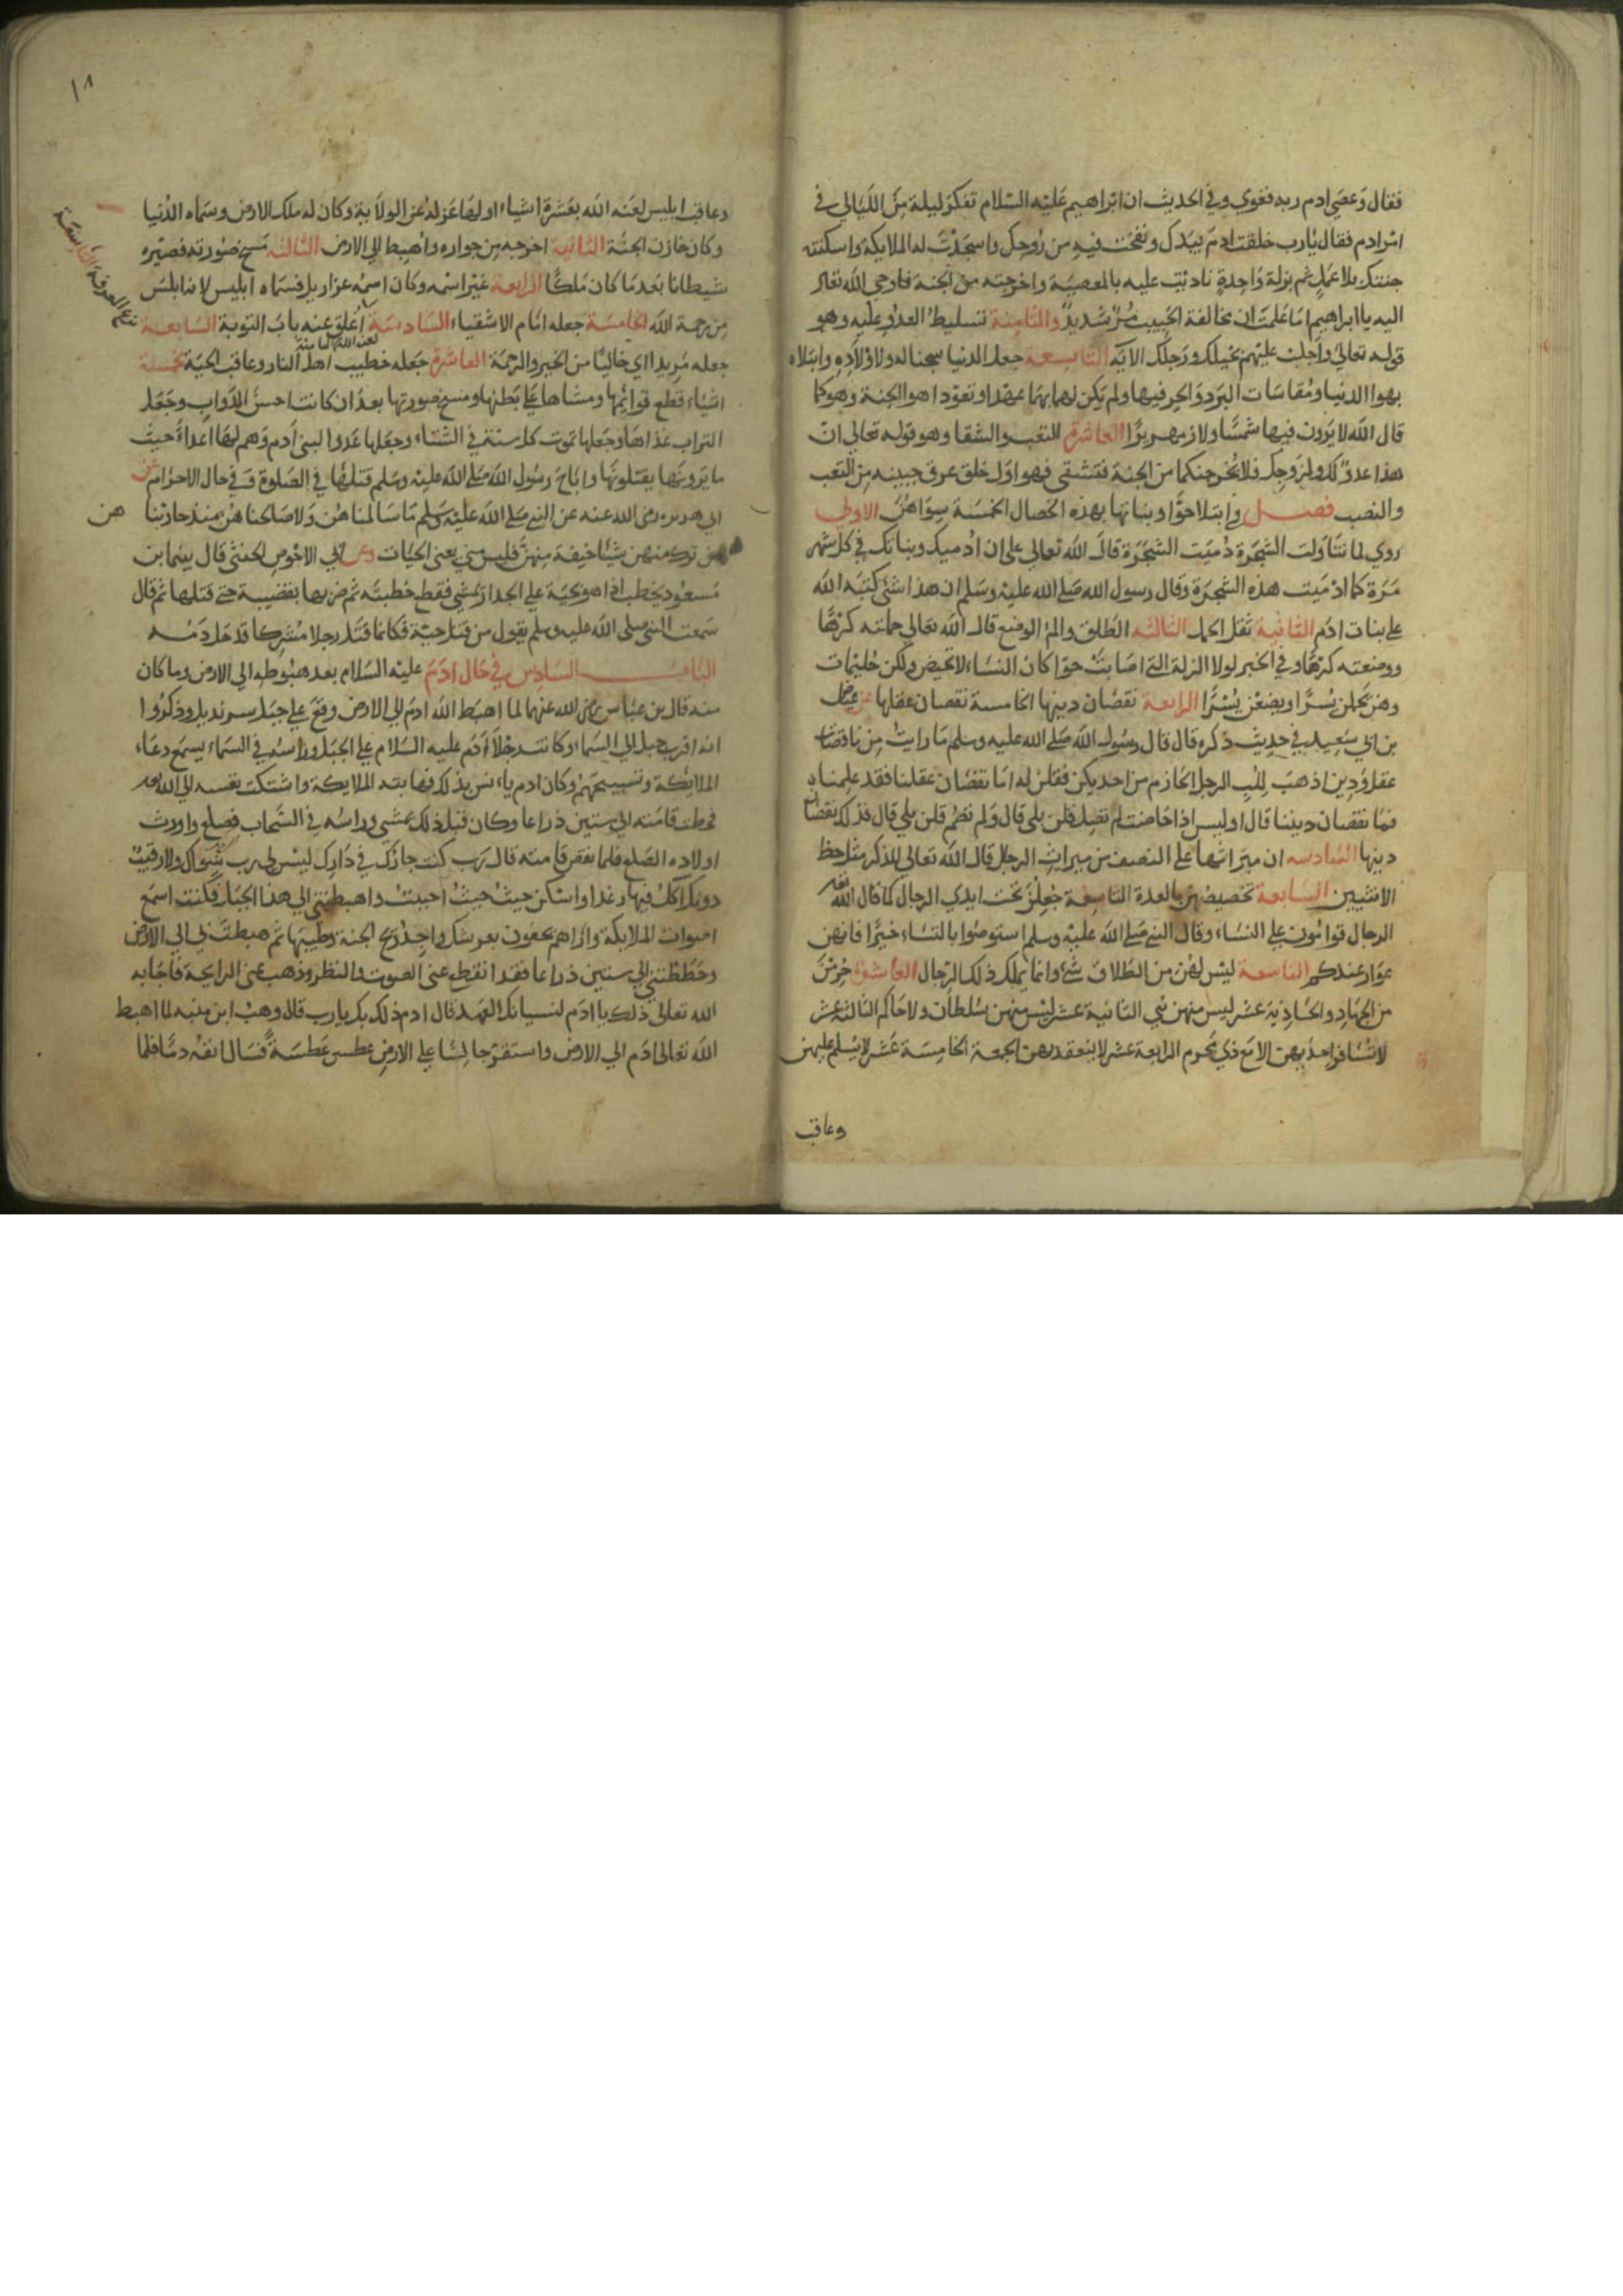 فقال وعصى ادم ربه فغوي وفي الحديث ان ابراهيم عليه السلام تفكر ليلة من الليالي في
امر ادم فقال يارب خلقت ادم بيدك ونفخت فيه من روحك واسجدت له الملايكة واسكنته
جنتك بلا عمل ثم بزلة واحدة ناديت عليه بالمعصية واخرجته من الجنة فاوحى الله تعالى
اليه يا ابراهيم اما علمت ان مخالفة الحبيب شديد والثامنة تسليط العدو عليه وهو
قوله تعالي واجلب عليهم بخيلك ورجلك الاية التاسعة جعل الدنيا سجنا له ولاولاده وابتلاه
بهوا الدنيا ومقاسات البرد والحر فيها ولم يكن لهما بهما عهد او تعودا هوا الجنة وهو كما
قال الله لا يرون فيها شمسا ولا زمهريرا العاشرة التعب والشقا وهو قوله تعالي ان
هذا عدو لك ولزوجك فلا يخرجنكما من الجنة فتشقى فهو اول خلق عرق جبينه من التعب
والنصب فصل في ابتلا حوا وبناتها بهذه الخصال الخمسة سواهن الاولي
روي لما تناولت الشجرة دميت الشجرة قال الله تعالي على ان ادميك وبناتك في كل شهر
مرة كما ادميت هذه الشجرة وقال رسول الله صلى الله عليه وسلم ان هذا شئ كتبه الله
على بنات ادم الثانية ثقل الحمل الثالثة الطلق والم الوضع قال الله تعالي حملته كرها
ووضعته كرها وفي الخبر لولا الزلة التي اصابت حوا كان النساء لا تحيض ولكن حليمات
وهن يحملن يسرا ويضعن يسرا الرابعة نقصان دينها الخامسة نقصان عقلها عن عياض
بن ابي سعيد في حديث ذكره قال قال رسول الله صلى الله عليه وسلم ما رايت من ناقصات
عقل ودين اذهب للب الرجل الحازم من احديكن فقلن له اما نقصان عقلنا فقد علمناه
فما نقصان ديننا قال اوليس اذا حاضت لم تصل قلن بلى قال ولم تصم قلن بلي قال فذلك نقصان
دينها السادسه ان ميراثها على النصف من ميراث الرجل قال الله تعالي للذكر مثل حظ
الانثيين السابعة تخصيصهن بالعدة الثامنة جعلن تحت ايدي الرجال كما قال الله تعالى
الرجال قوامون على النساء وقال النبي صلى الله عليه وسلم استوصوا بالنساء خيرا فانهن
عوار عندكم التاسعة ليس لهن من الطلاق شئ وانما يملك ذلك الرجال العاشرة حرمن
من الجهاد والحادية عشر ليس منهن نبي الثانية عشر ليس منهن سلطان ولا حاكم الثالثة عشر
لا تسافر احديهن الا مع ذي محرم الرابعة عشر لا ينعقد بهن الجمعة الخامسة عشر لا يسلم عليهن
وعاقب
١٨
وعاقب ابليس لعنه الله بعشرة اشياء اولها عزله عن الولاية وكان له ملك الارض وسماء الدنيا
وكان خازن الجنة الثانية اخرجه من جواره واهبط الي الارض الثالثة مسخ صورته فصيره
شيطانا بعد ما كان ملكا الرابعة غير اسمه وكان اسمه عزازيل فسماه ابليس لانه ابلس
من رحمة الله الخامسة جعله امام الاشقياء السادسة اغلق عنه باب التوبة السابعة
لعنه الله الثامنة
جعله مريدا اي خاليا من الخير والرحمة العاشرة جعله خطيب اهل النار وعاقب الحية بخمسة
التاسعة
اشياء قطع قوائمها ومشاها على بطنها ومسخ صورتها بعد ان كانت احسن الدواب وجعل
التراب غذاها وجعلها تموت كل سنة في الشتاء وجعلها عدوا لبني ادم وهم لها اعداء حيث
ما يرونها يقتلونها واباح رسول الله صلى الله عليه وسلم قتلها في الصلوة وفي حال الاحرام عن
ابي هريره رضى الله عنه عن النبي صلى الله عليه وسلم ما سالمناهن ولا صالحناهن منذ حاربنا
هن
فمن ترك منهن شيئا خيفة منهن فليس مني يعني الحيات وعن ابي الاحوص الخثنى قال بينما ابن
مسعود يخطب اذا هو بحية على الجدار تمشي فقطع خطبته ثم ضربها بقضيبه حتى قتلها ثم قال
سمعت النبي صلى الله عليه وسلم يقول من قتل حية فكانما قتل رجلا مشركا قد حل دمه
الباب السادس في حال ادم عليه السلام بعد هبوطه الي الارض وما كان
منه قال بن عباس رضى الله عنهما لما اهبط الله ادم الي الارض وقع على جبل سرنديل وذكروا
انه اقرب جبل الي السماء وكانت رجلا ادم عليه السلام على الجبل وراسه في السماء يسمع دعاء
الملايكة وتسبيحهم وكان ادم يانس بذلك فهابته الملايكة واشتكت نفسه الي الله
فحطت قامته الي ستين ذراعا وكان قبل ذلك يمشي وراسه في السحاب فصلع واورث
اولاده الصلع فلما نقص قامته قال رب كنت جارك في دارك ليس لي رب سواك ولا رقيب
دونك اكل فيها رغدا واسكن حيث حيث احببت واهبطتني الي هذا الجبل فكنت اسمع
اصوات الملايكة واراهم يحفون بعرشك واجد ريح الجنة وطيبها ثم هبطتني الي الارض
وحططتني الي ستين ذراعا فقد انقطع عني الصوت والنظر وذهب عني الرايحة فاجابه
الله تعالى ذلك يا ادم لنسيانك العهد قال ادم ذلك بك يارب قال وهب ابن منبه لما اهبط
الله تعالى ادم الي الارض واستقر جالسا على الارض عطس عطسة فسال انفه دما فلما